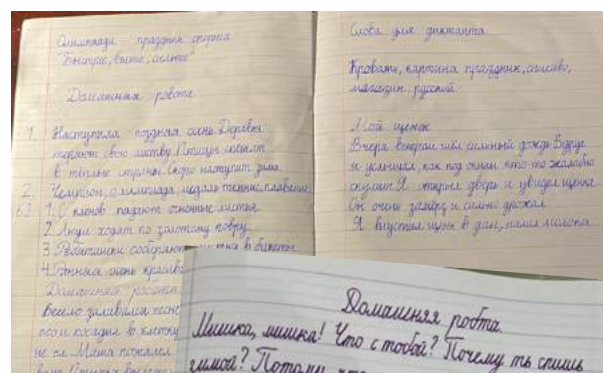 Олимпиада - праздник спорта
"Быстрее, выше, сильнее"
Домашняя робота
1. Наступила поздняя осень. Деревья
теряют свою листву. Птицы
в тёплые страны. Скоро наступит зима.
2. Чемпион, олимпиада, медаль теннис, плавание
63 1. С клёнов падают огненные листья.
2. Люди ходят по золотому ковру
3. Ребятишки собирают листья в букеты
4. осень красива
Домашняя робота
Весело заливался
его и посадил в клетку
не ел. Миша пожалел
Слова для диктанта
Кровать, картина праздник, спасибо,
магазин, русский.
Мой щенок
Вчера вечером шёл сильный дождь. Вдруг
я услышал, как под окном кто-то жалобно
скулит. Я открыл дверь и увидел щенка
Он очень замёрз и сильно дрожал
Я впустил щень в дом, налил молока
Домашняя робта.
Мишка, мишка! Что с тобой? Почему ть спишь
зимой? Потому что